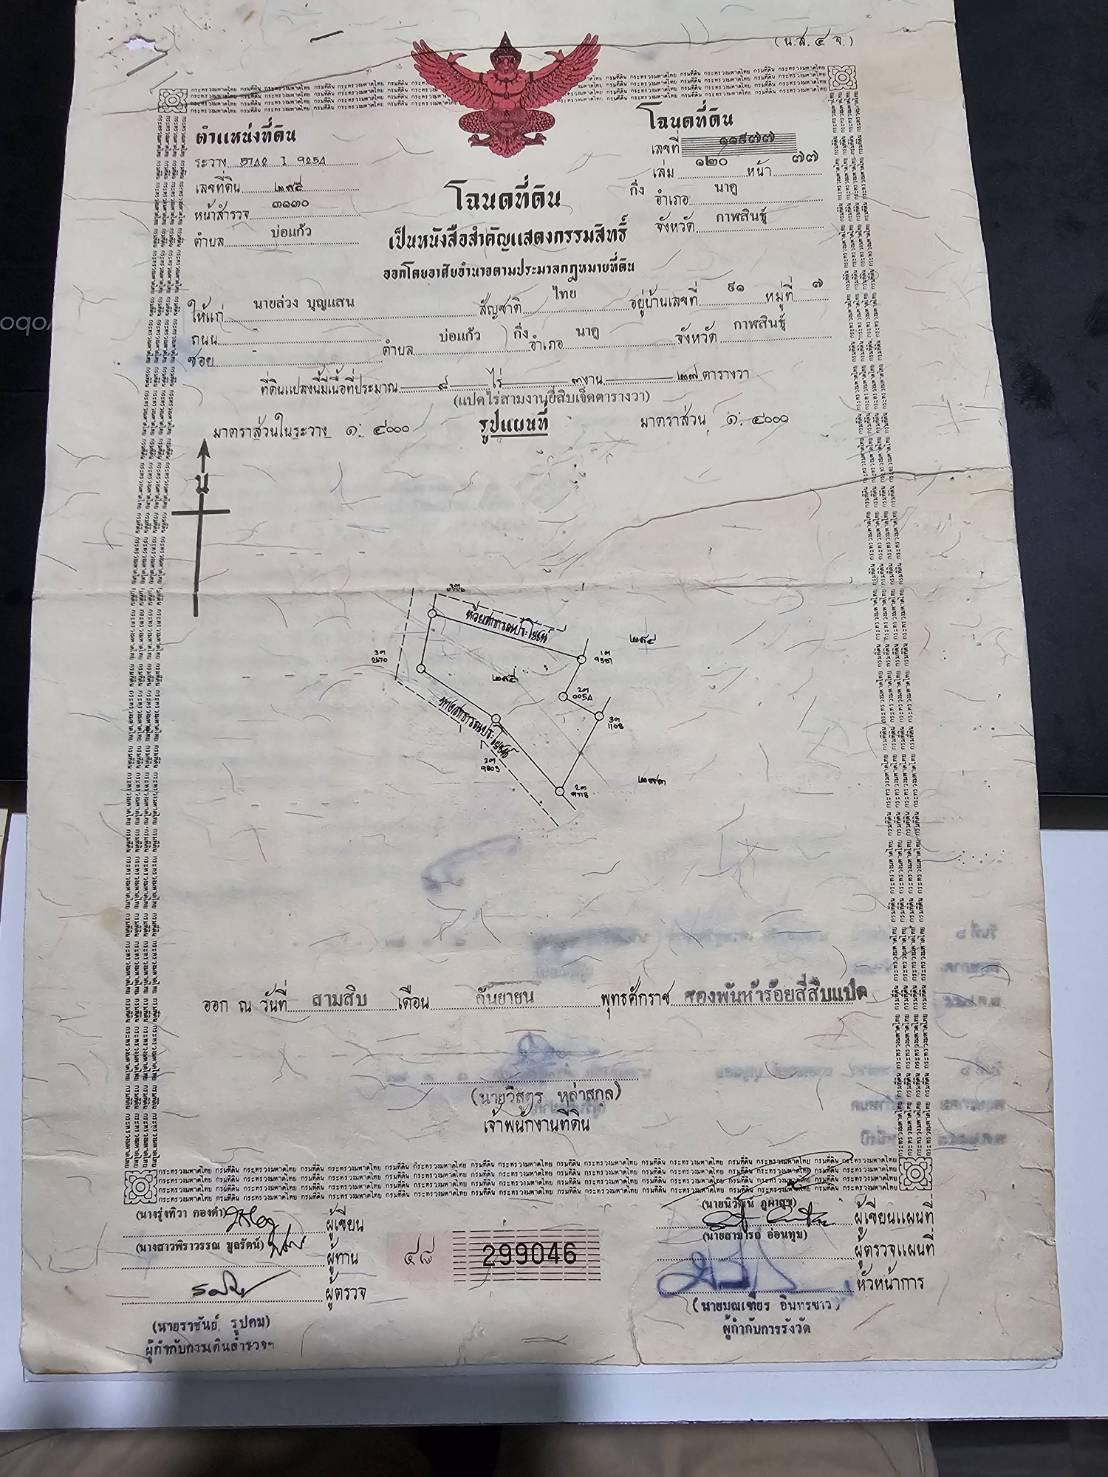 (น.ส.๔ จ.)
ตำแหน่งที่ดิน
ระวาง
เลขที่ดิน ๒๓๕
หน้าสำรวจ ๓๑๓๐
ตำบล บ่อแก้ว
โฉนดที่ดิน
เลขที่ ๑๑๕๗๗
เล่ม ๑๒๐ หน้า ๗๗
กิ่ง อำเภอ นาคู
จังหวัด กาฬสินธุ์
โฉนดที่ดิน
เป็นหนังสือสำคัญแสดงกรรมสิทธิ์
ออกโดยอาศัยอำนาจตามประมวลกฎหมายที่ดิน
ให้แก่ นายล่วง บุญแสน สัญชาติ ไทย อยู่บ้านเลขที่ ๙๑ หมู่ที่ ๗
ถนน ซอย - ตำบล บ่อแก้ว กิ่ง อำเภอ นาคู จังหวัด กาฬสินธุ์
ที่ดินแปลงนี้มีเนื้อที่ประมาณ ๘ ไร่ ๓ งาน ๒๗ ตารางวา
(แปดไร่สามงานยี่สิบเจ็ดตารางวา)
มาตราส่วนในระวาง ๑ : ๔๐๐๐ รูปแผนที่ มาตราส่วน ๑ : ๔๐๐๐
น
ห้วยสาธารณประโยชน์
ทางสาธารณประโยชน์
ออก ณ วันที่ สามสิบ เดือน กันยายน พุทธศักราช สองพันห้าร้อยสี่สิบแปด
(นายวิสูตร หล่าสกุล)
เจ้าพนักงานที่ดิน
(นางรุ่งทิวา คองคำ) ผู้เขียน
(นางสาวพิราวรรณ มูลรัตน์) ผู้ทาน
ผู้ตรวจ
(นายราชันย์ รูปคม)
ผู้กำกับการเดินสำรวจฯ
299046
(นายนิวัฒน์ ภูผาสุข) ผู้เขียนแผนที่
(นายสามารถ อ่อนทุม) ผู้ตรวจแผนที่
หัวหน้าการ
(นายมณเฑียร อินทรขาว)
ผู้กำกับการรังวัด